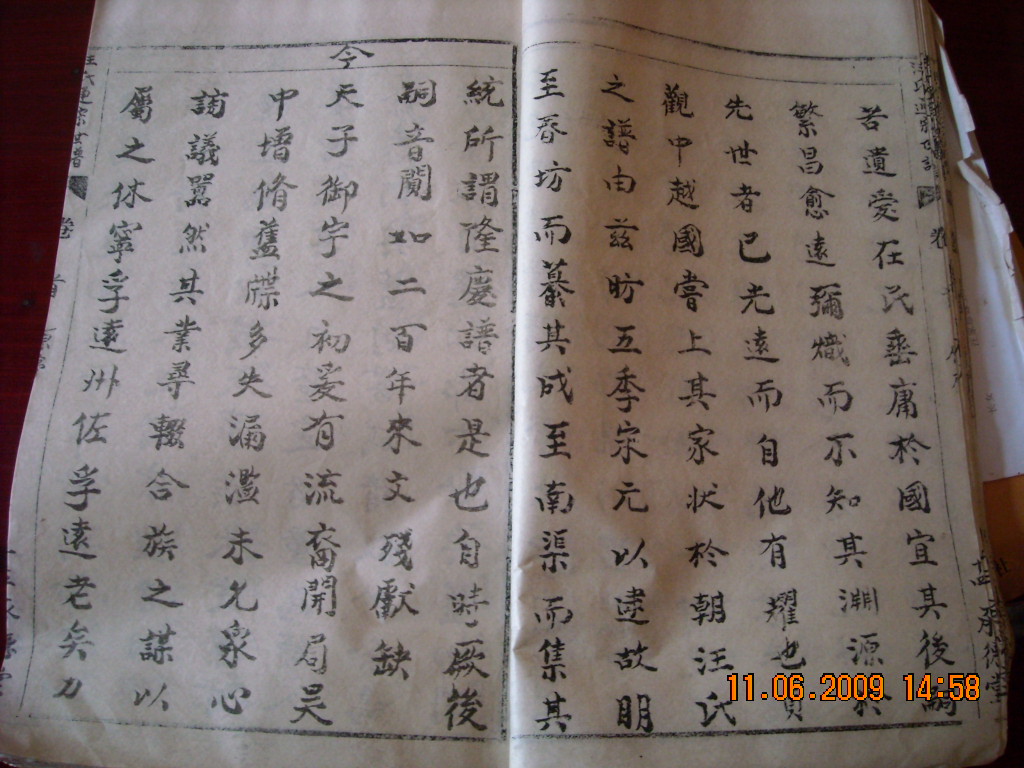 若遺愛在民垂庸於國宜其後嗣
繁昌愈遠彌熾而不知其淵源於
先世者已光遠而自他有耀也
觀中越國嘗上其家狀於朝汪氏
之譜由茲昉五季宋元以逮故明
至春坊而纂其成至南渠而集其
統所謂隆慶譜者是也自時厥後
嗣音闃如二百年來文殘獻缺
今
天子御宇之初爰有流裔開局吳
中增脩舊牒多失漏濫未允衆心
謫議嚚然其業尋輟合族之謀以
屬之休寧孚遠州佐孚遠老矣力
11.06.2009 14:58